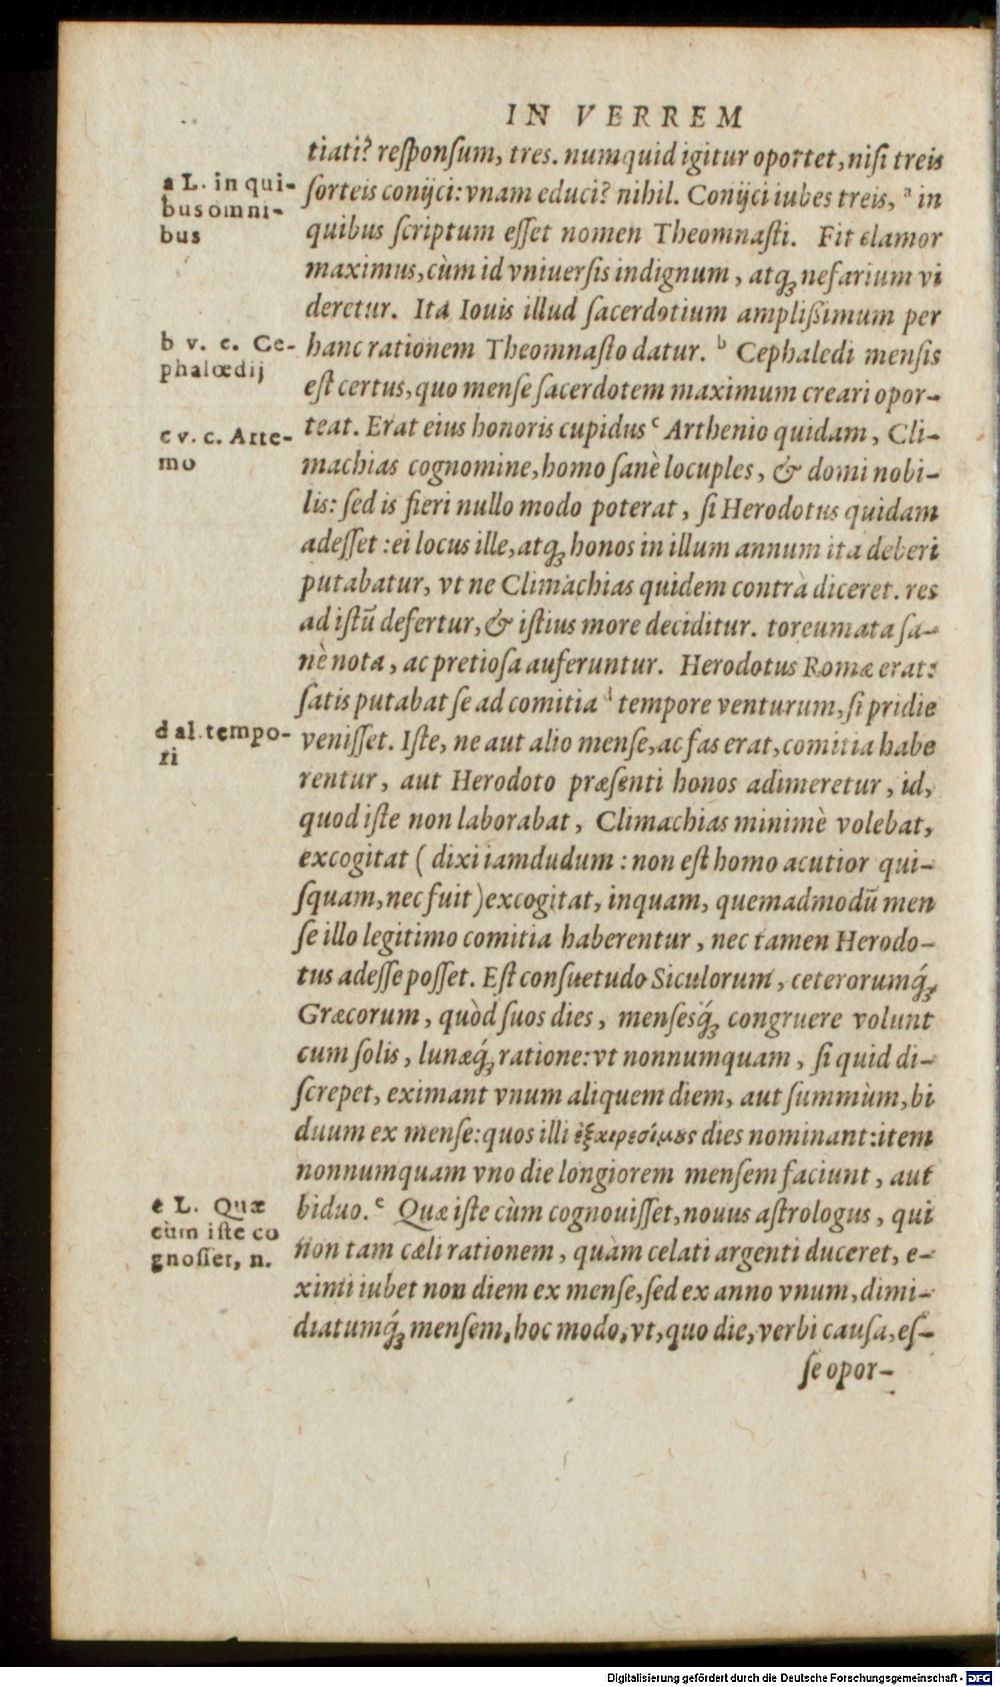 IN VERREM
tiati? reſponſum, tres. numquid igitur oportet, niſi treis
ſorteis conijci: vnam educi? nihil. Conijci iubes treis, ᵃ in
quibus ſcriptum eſſet nomen Theomnaſti. Fit clamor
maximus, cùm id vniuerſis indignum, atq́; nefarium vi
deretur. Ita Iouis illud ſacerdotium amplißimum per
hanc rationem Theomnaſto datur. ᵇ Cephaledi menſis
eſt certus, quo menſe ſacerdotem maximum creari opor-
teat. Erat eius honoris cupidus ᶜ Arthenio quidam, Cli-
machias cognomine, homo ſanè locuples, & domi nobi-
lis: ſed is fieri nullo modo poterat, ſi Herodotus quidam
adeſſet: ei locus ille, atq; honos in illum annum ita deberi
putabatur, vt ne Climachias quidem contrà diceret. res
ad iſtũ defertur, & iſtius more deciditur. toreumata ſa-
nè nota, ac pretioſa auferuntur. Herodotus Romæ erat:
ſatis putabat ſe ad comitia ᵈ tempore venturum, ſi pridie
veniſſet. Iſte, ne aut alio menſe, ac fas erat, comitia habe
rentur, aut Herodoto præſenti honos adimeretur, id,
quod iſte non laborabat, Climachias minimè volebat,
excogitat (dixi iamdudum: non eſt homo acutior qui-
ſquam, nec fuit) excogitat, inquam, quemadmodũ men
ſe illo legitimo comitia haberentur, nec tamen Herodo-
tus adeſſe poſſet. Eſt conſuetudo Siculorum, ceterorumq́;
Græcorum, quòd ſuos dies, menſesq́; congruere volunt
cum ſolis, lunæq́; ratione: vt nonnumquam, ſi quid di-
ſcrepet, eximant vnum aliquem diem, aut ſummùm, bi
duum ex menſe: quos illi ἐξαιρεσίμους dies nominant: item
nonnumquam vno die longiorem menſem faciunt, aut
biduo. ᵉ Quæ iſte cùm cognouiſſet, nouus aſtrologus, qui
non tam cæli rationem, quàm celati argenti duceret, e-
ximi iubet non diem ex menſe, ſed ex anno vnum, dimi-
diatumq́; menſem, hoc modo, vt, quo die, verbi cauſa, eſ-
ſe opor-
a L. in qui-
bus omni-
bus
b v. c. Ce-
phalœdij
c v. c. Arte-
mo
d al. tempo-
ri
e L. Quæ
cùm iſte co
gnoſſet, n.
Digitalisierung gefördert durch die Deutsche Forschungsgemeinschaft - DFG